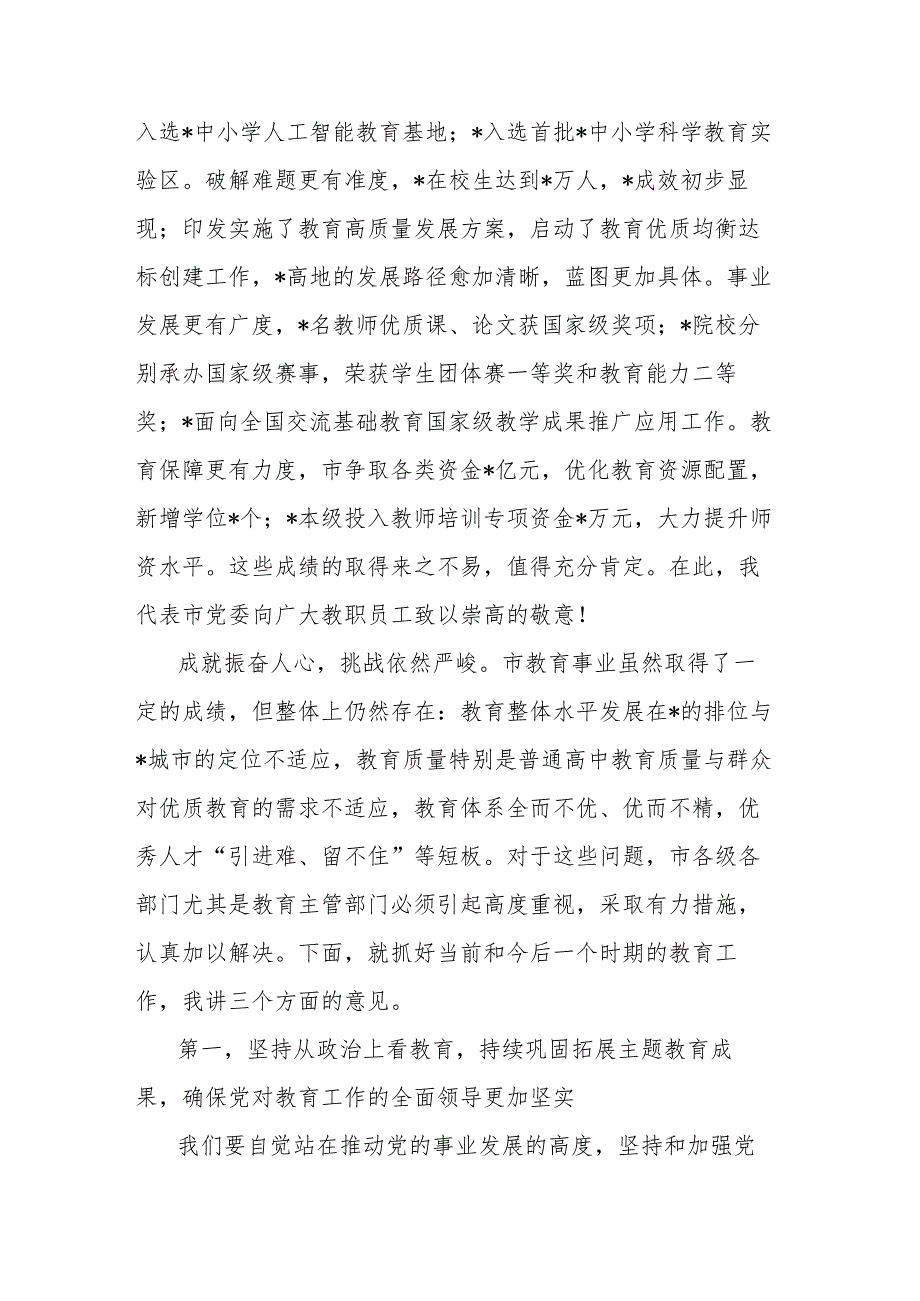 入选*中小学人工智能教育基地；*入选首批*中小学科学教育实
验区。破解难题更有准度，*在校生达到*万人，*成效初步显
现；印发实施了教育高质量发展方案，启动了教育优质均衡达
标创建工作，*高地的发展路径愈加清晰，蓝图更加具体。事业
发展更有广度，*名教师优质课、论文获国家级奖项；*院校分
别承办国家级赛事，荣获学生团体赛一等奖和教育能力二等
奖；*面向全国交流基础教育国家级教学成果推广应用工作。教
育保障更有力度，市争取各类资金*亿元，优化教育资源配置，
新增学位*个；*本级投入教师培训专项资金*万元，大力提升师
资水平。这些成绩的取得来之不易，值得充分肯定。在此，我
代表市党委向广大教职员工致以崇高的敬意！
成就振奋人心，挑战依然严峻。市教育事业虽然取得了一
定的成绩，但整体上仍然存在：教育整体水平发展在*的排位与
*城市的定位不适应，教育质量特别是普通高中教育质量与群众
对优质教育的需求不适应，教育体系全而不优、优而不精，优
秀人才“引进难、留不住”等短板。对于这些问题，市各级各
部门尤其是教育主管部门必须引起高度重视，采取有力措施，
认真加以解决。下面，就抓好当前和今后一个时期的教育工
作，我讲三个方面的意见。
第一，坚持从政治上看教育，持续巩固拓展主题教育成
果，确保党对教育工作的全面领导更加坚实
我们要自觉站在推动党的事业发展的高度，坚持和加强党